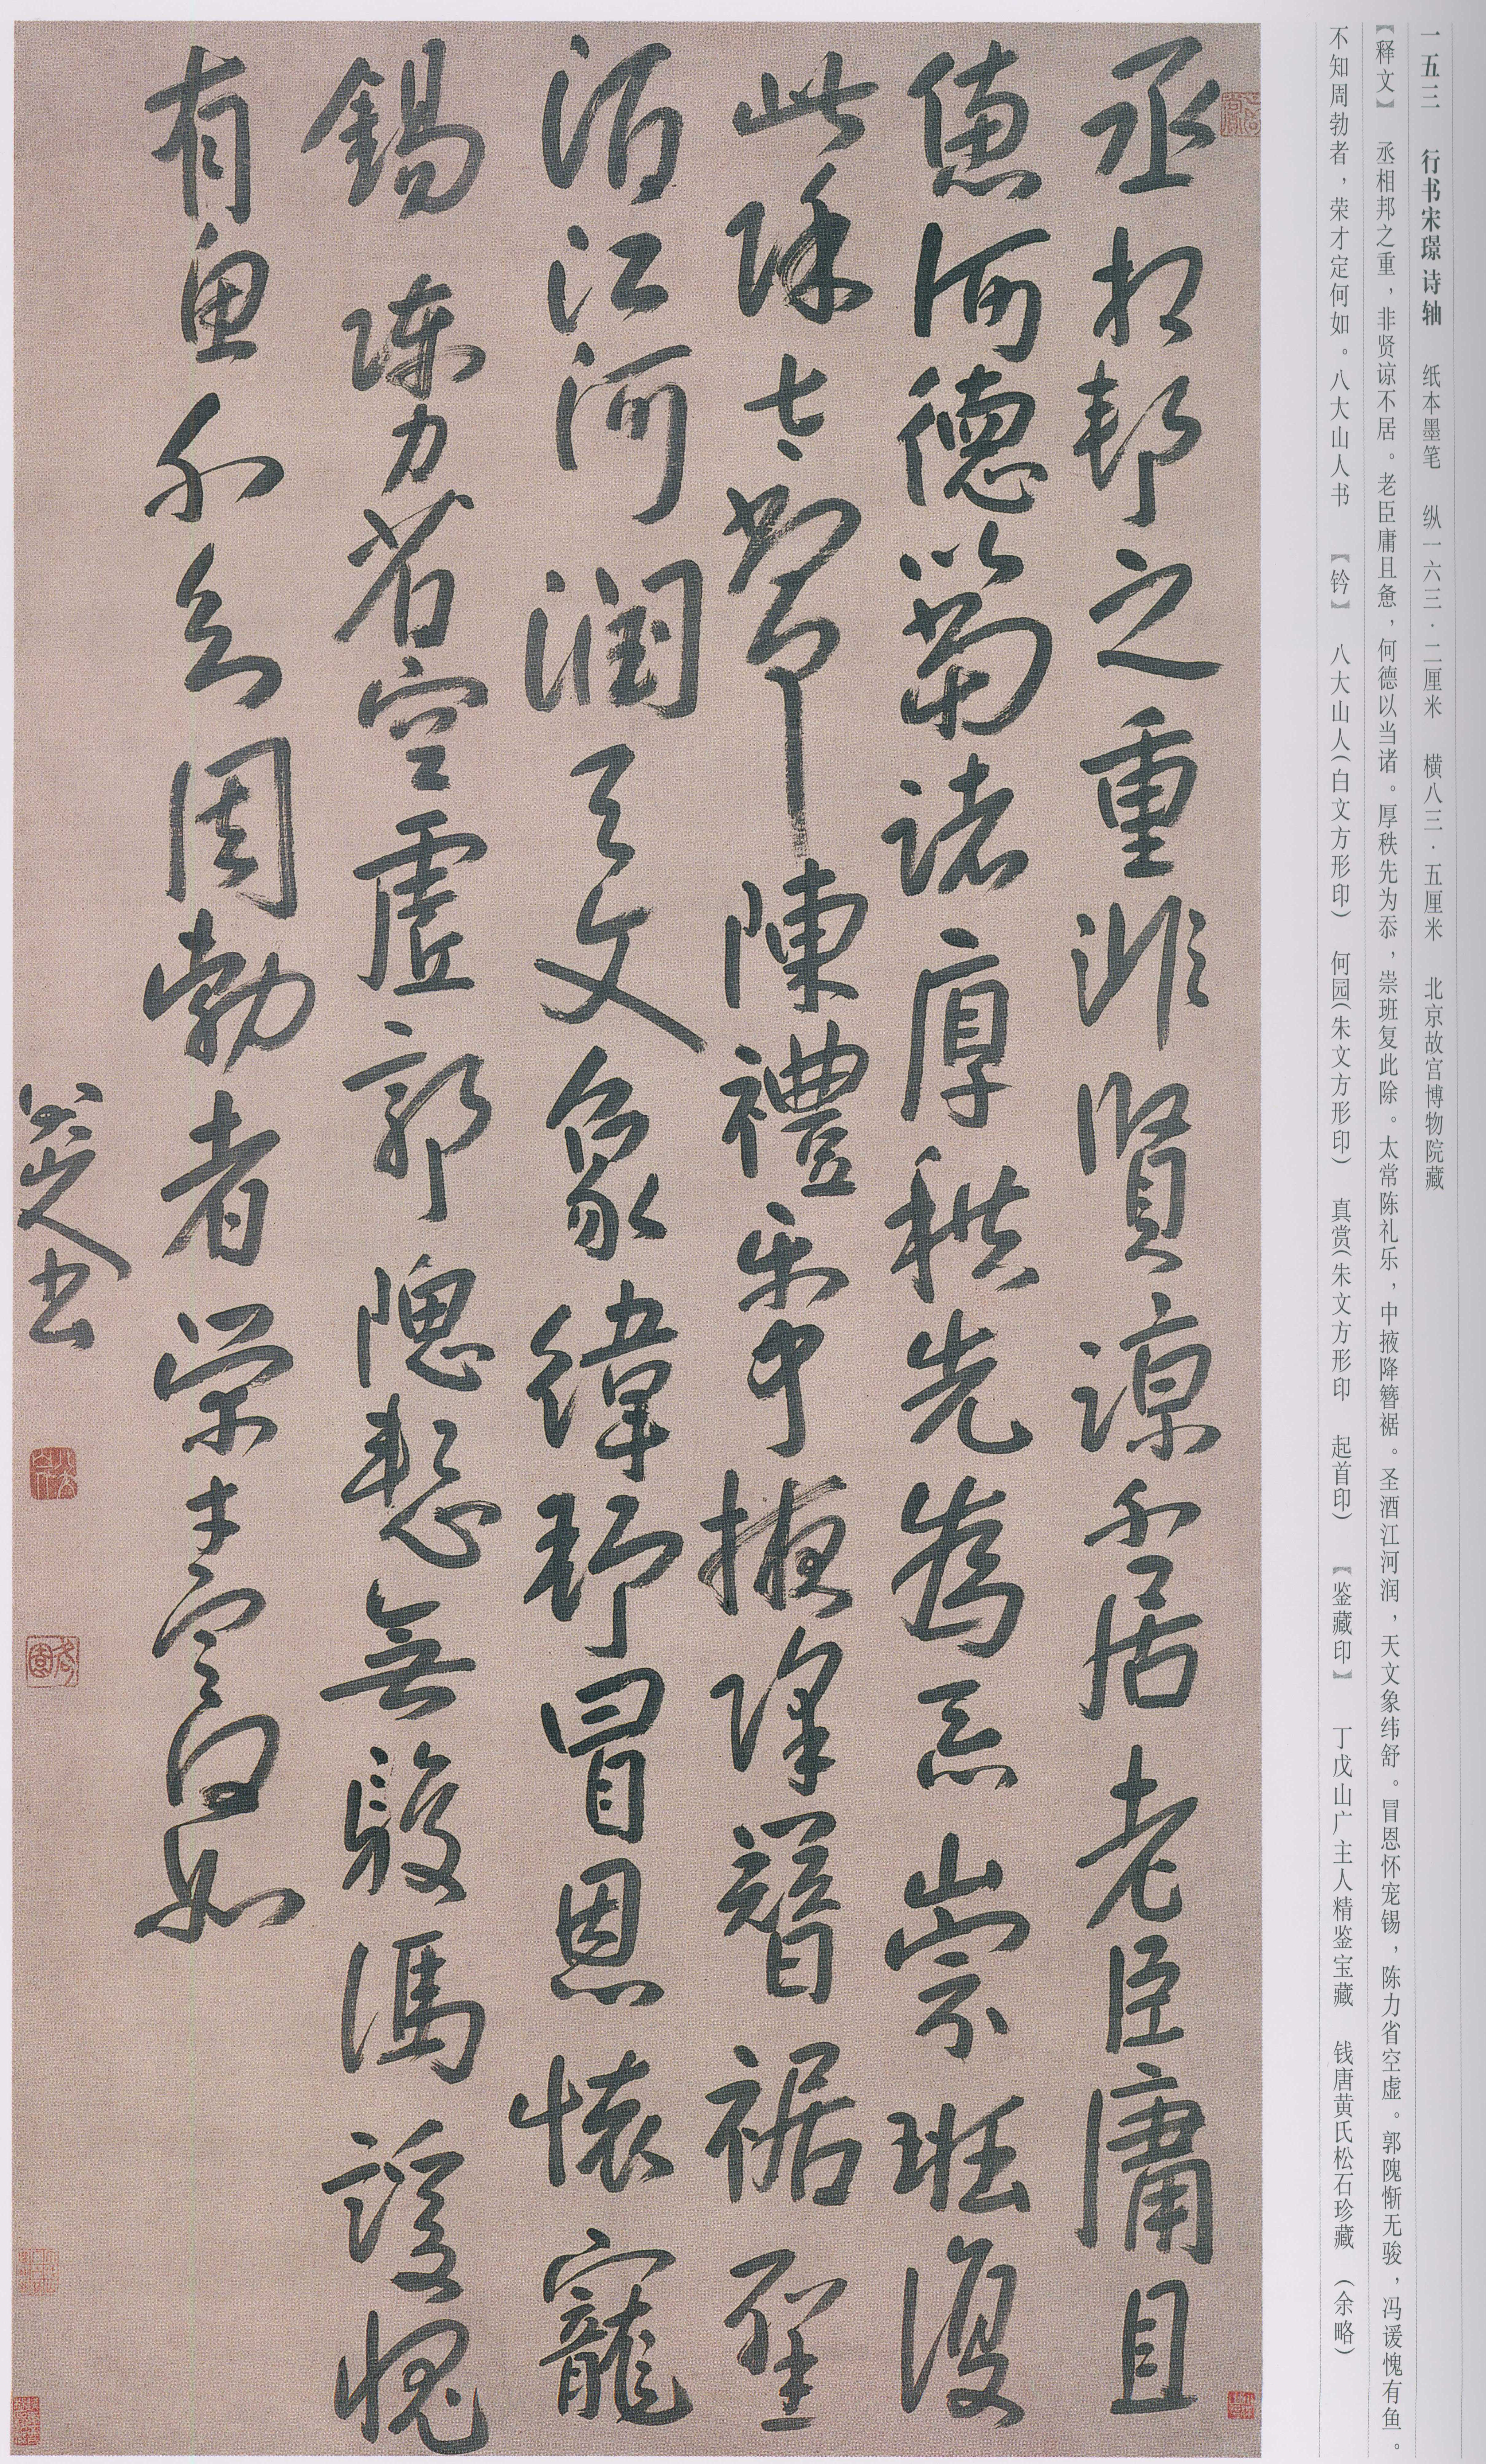 一五三　行书宋璟诗轴　纸本墨笔　纵一六三·二厘米　横八三·五厘米　北京故宫博物院藏
【释文】　丞相邦之重，非贤谅不居。老臣庸且惫，何德以当诸。厚秩先为忝，崇班复此除。太常陈礼乐，中掖降簪裾。圣酒江河润，天文象纬舒。冒恩怀宠锡，陈力省空虚。郭隗惭无骏，冯谖愧有鱼。
不知周勃者，荣才定何如。八大山人书　【钤】　八大山人（白文方形印）　何园（朱文方形印）　真赏（朱文方形印　起首印）　【鉴藏印】　丁戊山广主人精鉴宝藏　钱唐黄氏松石珍藏　（余略）
丞相邦之重非賢諒不居老臣庸且
憊何德以當諸厚秩先為忝崇班復
此除太常陳禮樂中掖降簪裾聖
酒江河潤天文象緯舒冒恩懷寵
錫陳力省空虛郭隗慙無駿馮諼愧
有魚不知周勃者榮才定何如
八大山人書